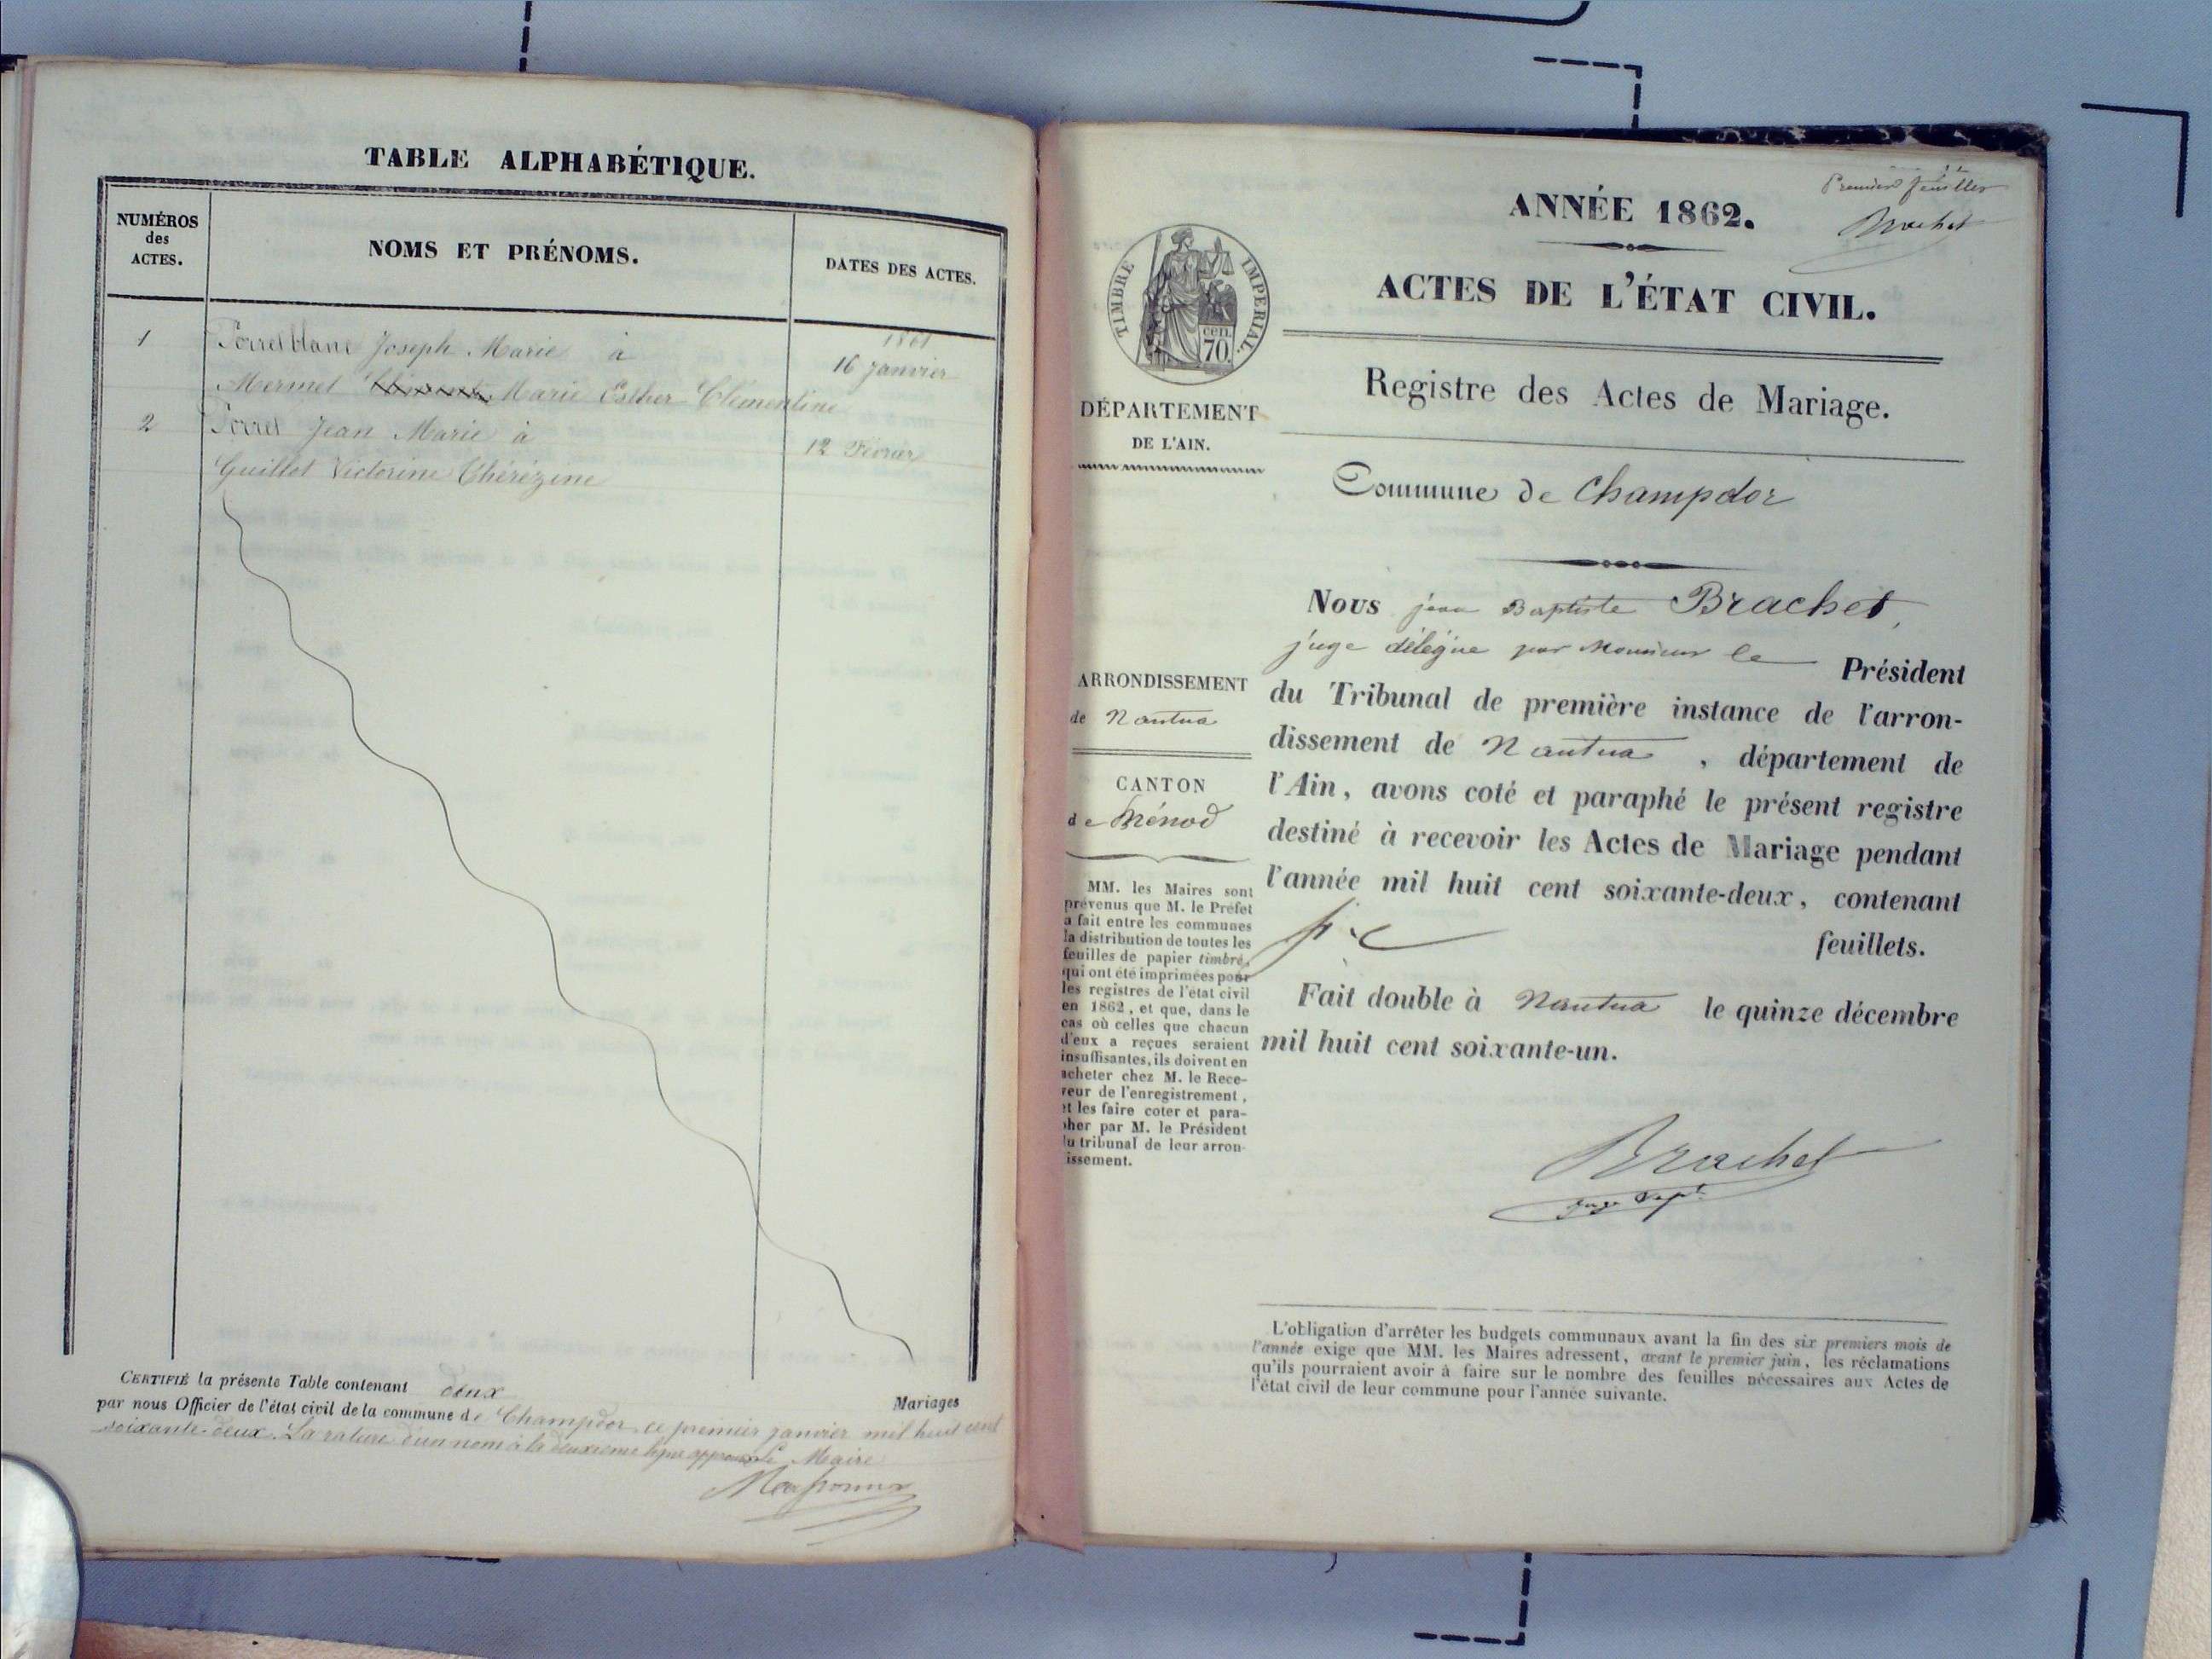 TABLE ALPHABÉTIQUE.
NUMÉROS
des
ACTES.
NOMS ET PRÉNOMS.
DATES DES ACTES.
1861
1 Porret blanc Joseph Marie à 16 Janvier
Mermet Marie Esther Clémentine
2 Porret Jean Marie à 12 Février
Guillot Victorine Thérézine
CERTIFIÉ la présente Table contenant deux Mariages
par nous Officier de l'état civil de la commune de Champdor, ce premier janvier mil huit cent
soixante-deux. La rature d'un nom à la deuxième ligne approuvée Le Maire
Premier feuillet
Brachet
ANNÉE 1862.
ACTES DE L'ÉTAT CIVIL.
TIMBRE IMPERIAL.
70 cen.
Registre des Actes de Mariage.
DÉPARTEMENT
DE L'AIN.
Commune de Champdor
ARRONDISSEMENT
de Nantua
CANTON
de Brénod
MM. les Maires sont
prévenus que M. le Préfet
a fait entre les communes
la distribution de toutes les
feuilles de papier timbré,
qui ont été imprimées pour
les registres de l'état civil
en 1862, et que, dans le
cas où celles que chacun
d'eux a reçues seraient
insuffisantes, ils doivent en
acheter chez M. le Rece-
veur de l'enregistrement,
et les faire coter et para-
pher par M. le Président
du tribunal de leur arron-
issement.
Nous jean Baptiste Brachet,
juge délégué par Monsieur le Président
du Tribunal de première instance de l'arron-
dissement de Nantua, département de
l'Ain, avons coté et paraphé le présent registre
destiné à recevoir les Actes de Mariage pendant
l'année mil huit cent soixante-deux, contenant
feuillets.
Fait double à Nantua le quinze décembre
mil huit cent soixante-un.
Brachet
L'obligation d'arrêter les budgets communaux avant la fin des six premiers mois de
l'année exige que MM. les Maires adressent, avant le premier juin, les réclamations
qu'ils pourraient avoir à faire sur le nombre des feuilles nécessaires aux Actes de
l'état civil de leur commune pour l'année suivante.